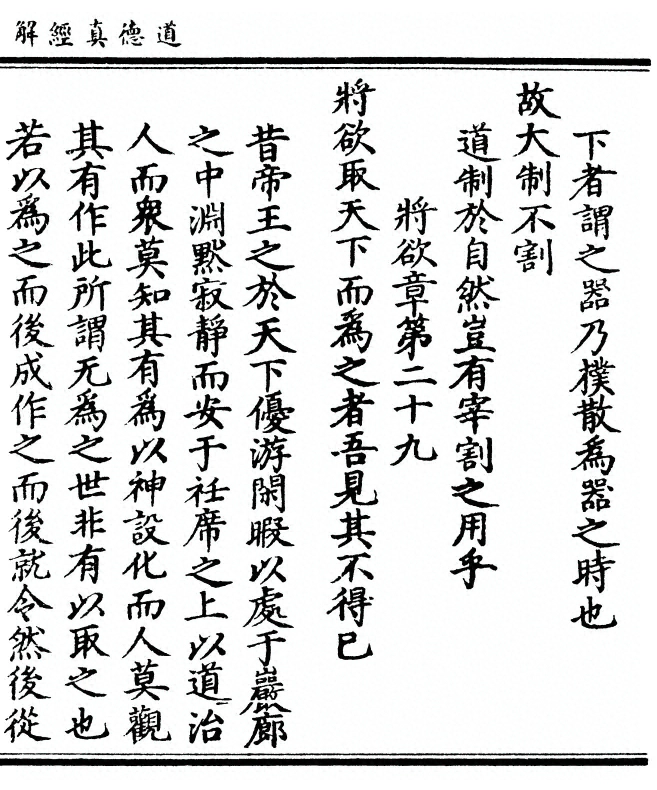 道德真經解
下者謂之器乃樸散爲器之時也
故大制不割
道制於自然豈有宰割之用乎
將欲章第二十九
將欲取天下而爲之者吾見其不得已
昔帝王之於天下優游閑暇以處于巖廊
之中淵默寂靜而安于袵席之上以道治
人而衆莫知其有爲以神設化而人莫觀
其有作此所謂无爲之世非有以取之也
若以爲之而後成作之而後就令然後從